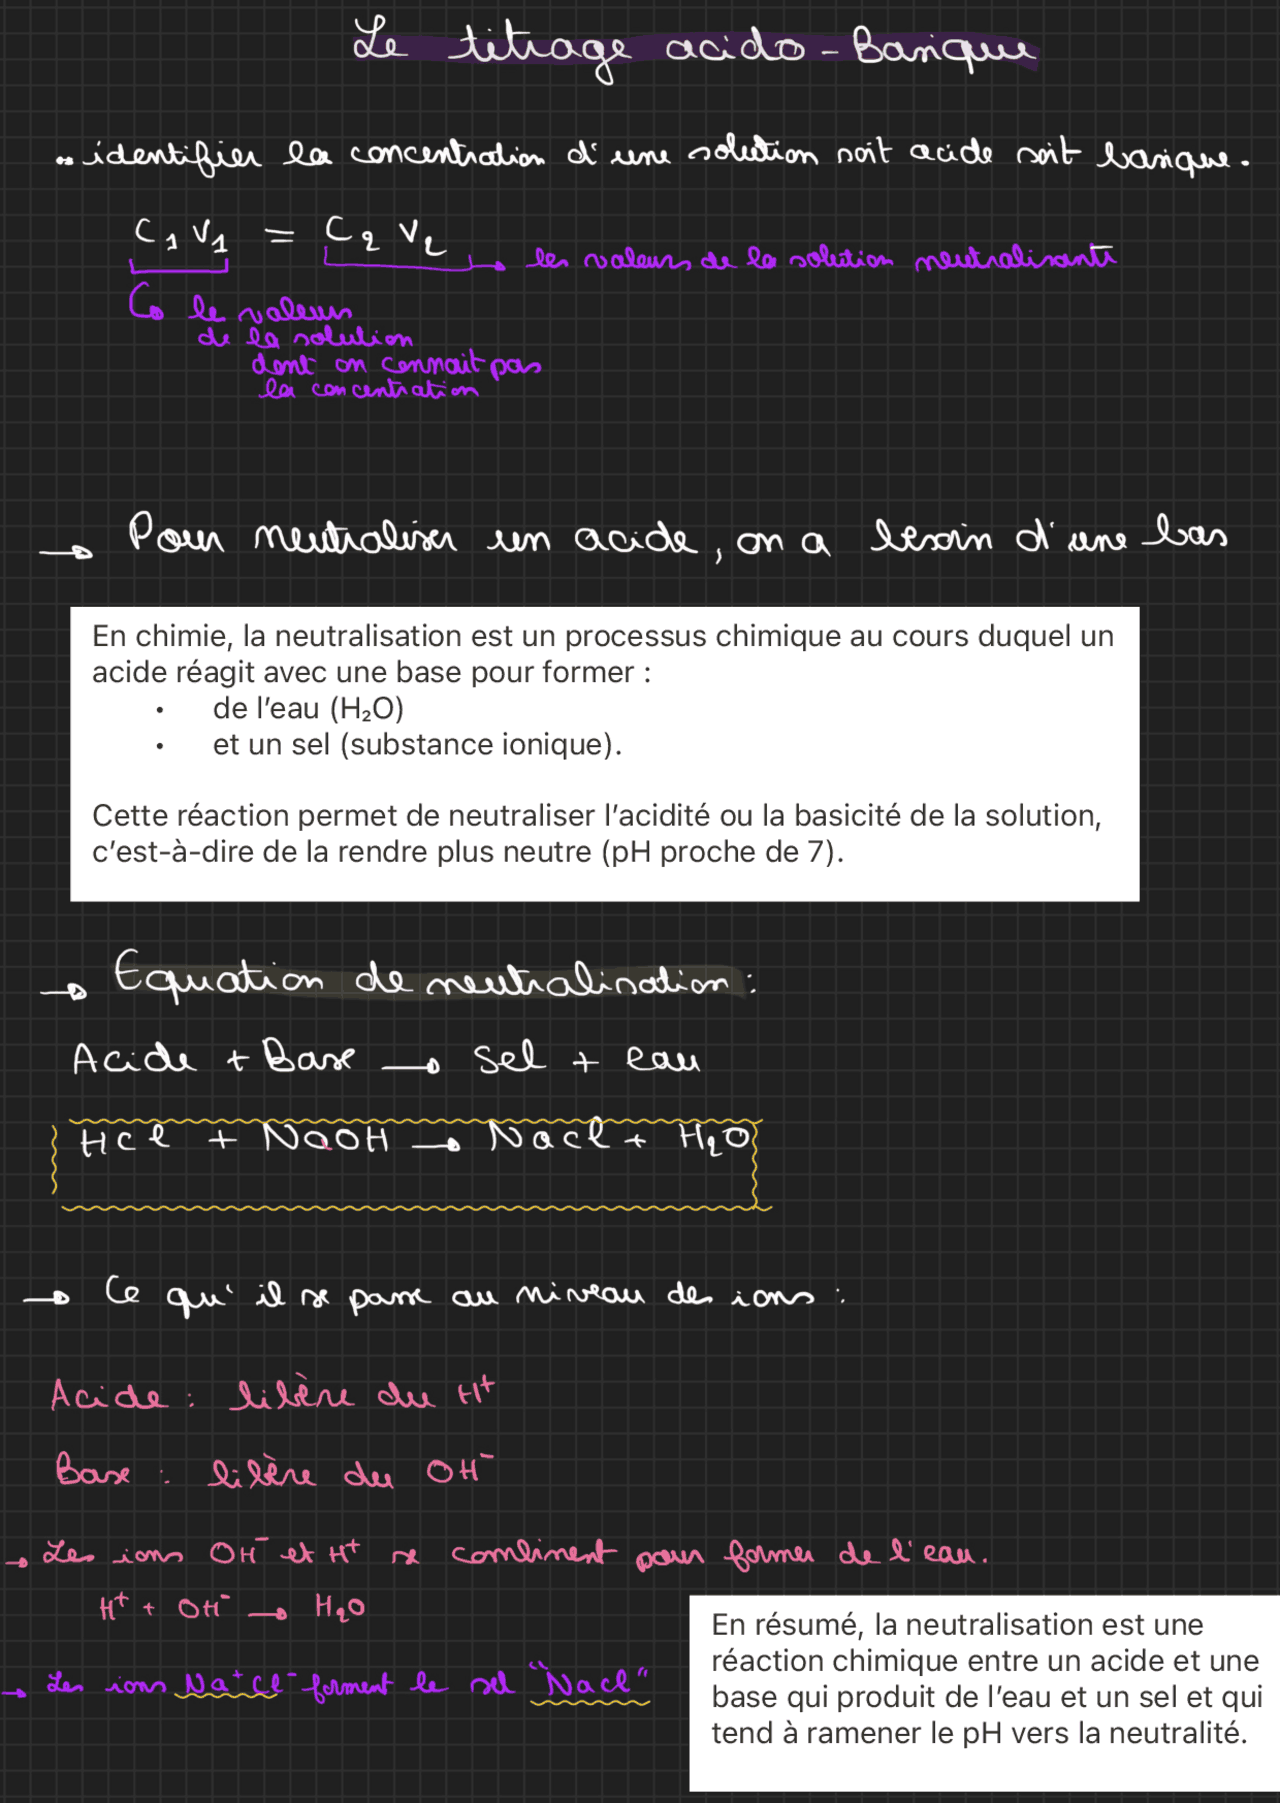 Le titrage acido-Basique
.. identifier la concentration d'une solution soit acide soit basique.
C₁ V₁ = C₂ V₂
les valeurs de la solution neutralisante
le valeurs
de la solution
dont on connait pas
la concentration
→ Pour neutraliser un acide, on a besoin d'une bas
En chimie, la neutralisation est un processus chimique au cours duquel un
acide réagit avec une base pour former :
• de l'eau (H₂O)
• et un sel (substance ionique).
Cette réaction permet de neutraliser l'acidité ou la basicité de la solution,
c'est-à-dire de la rendre plus neutre (pH proche de 7).
→ Equation de neutralisation :
Acide + Base → Sel + eau
HCl + NaOH → NaCl + H₂O
→ Ce qu'il se passe au niveau des ions :
Acide : libère du H⁺
Base : libère du OH⁻
→ Les ions OH⁻ et H⁺ se combinent pour former de l'eau.
H⁺ + OH⁻ → H₂O
→ Les ions Na⁺ Cl⁻ forment le sel "NaCl"
En résumé, la neutralisation est une
réaction chimique entre un acide et une
base qui produit de l'eau et un sel et qui
tend à ramener le pH vers la neutralité.